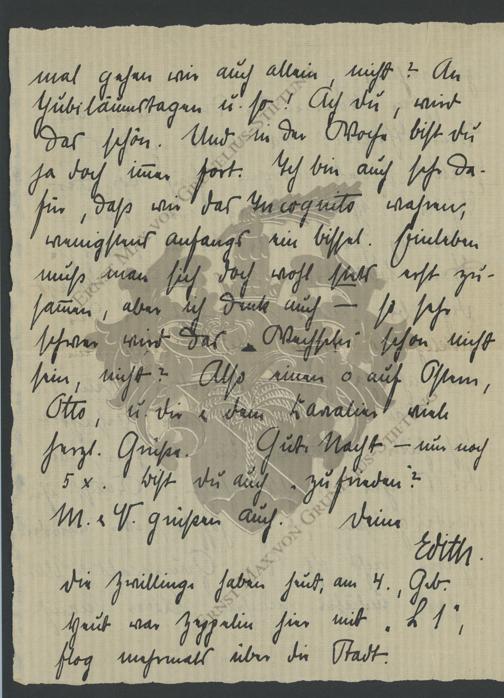 mal gehen wir auch allein, nicht? An
Jubiläumstagen u. so! Ach du, wird
das schön. Und in der Woche bist du
ja doch immer fort. Ich bin auch sehr da-
für, daß wir das Incognito wahren,
wenigstens anfangs ein bissel. Einleben
muß man sich doch wohl erst zu-
sammen, aber ich denk auch — so sehr
schwer wird das schon nicht
sein, nicht? Also einen o auf Ostern,
Otto, u. dir u. dem Kavalier viele
herzl. Grüße. Gute Nacht – nur noch
5 x. Bist du auch „zufrieden"?
M. u. V. grüßen auch. Deine
Edith.
Die Zwillinge haben heut, am 4., Geb.
Heut war Zeppelin hier mit „L 1",
flog mehrmals über die Stadt.
ERNST MAX VON GRUNELIUS-STIFTUNG
ERNST MAX VON GRUNELIUS-STIFTUNG